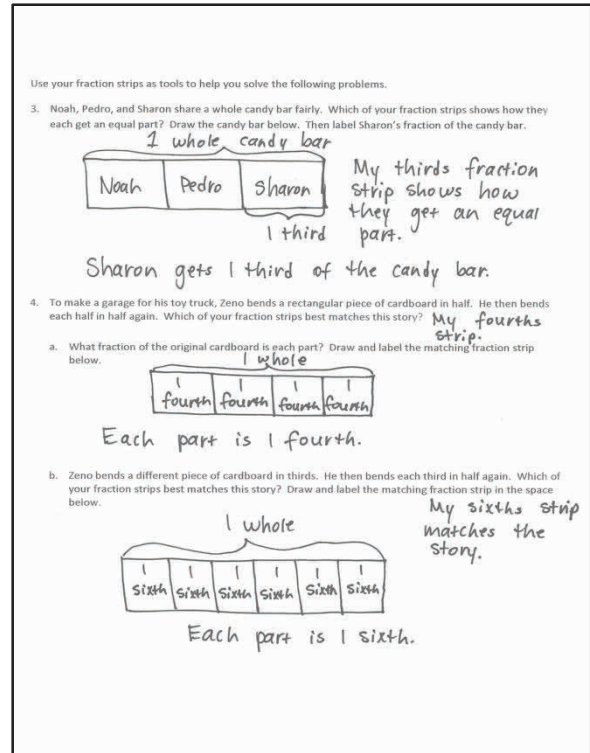 Use your fraction strips as tools to help you solve the following problems.
3. Noah, Pedro, and Sharon share a whole candy bar fairly. Which of your fraction strips shows how they
each get an equal part? Draw the candy bar below. Then label Sharon's fraction of the candy bar.
1 whole candy bar
Noah Pedro Sharon
1 third
My thirds fraction
strip shows how
they get an equal
part.
Sharon gets 1 third of the candy bar.
4. To make a garage for his toy truck, Zeno bends a rectangular piece of cardboard in half. He then bends
each half in half again. Which of your fraction strips best matches this story?
My fourths
strip.
a. What fraction of the original cardboard is each part? Draw and label the matching fraction strip
below.
1 whole
1 1 1 1
fourth fourth fourth fourth
Each part is 1 fourth.
b. Zeno bends a different piece of cardboard in thirds. He then bends each third in half again. Which of
your fraction strips best matches this story? Draw and label the matching fraction strip in the space
below.
My sixths strip
matches the
story.
1 whole
1 1 1 1 1 1
sixth sixth sixth sixth sixth sixth
Each part is 1 sixth.